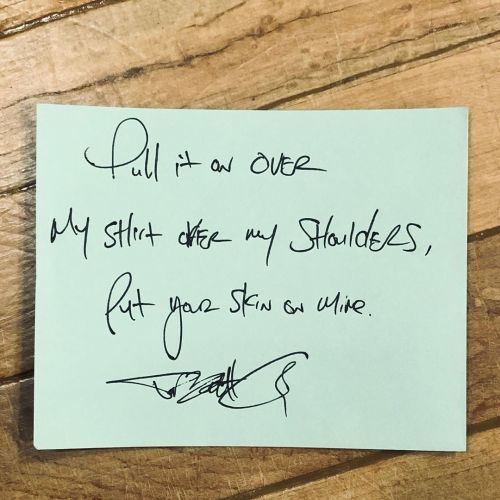 Pull it on OVER
My SHirt OVER my SHoulDERS,
Put your SKiN on Mine.